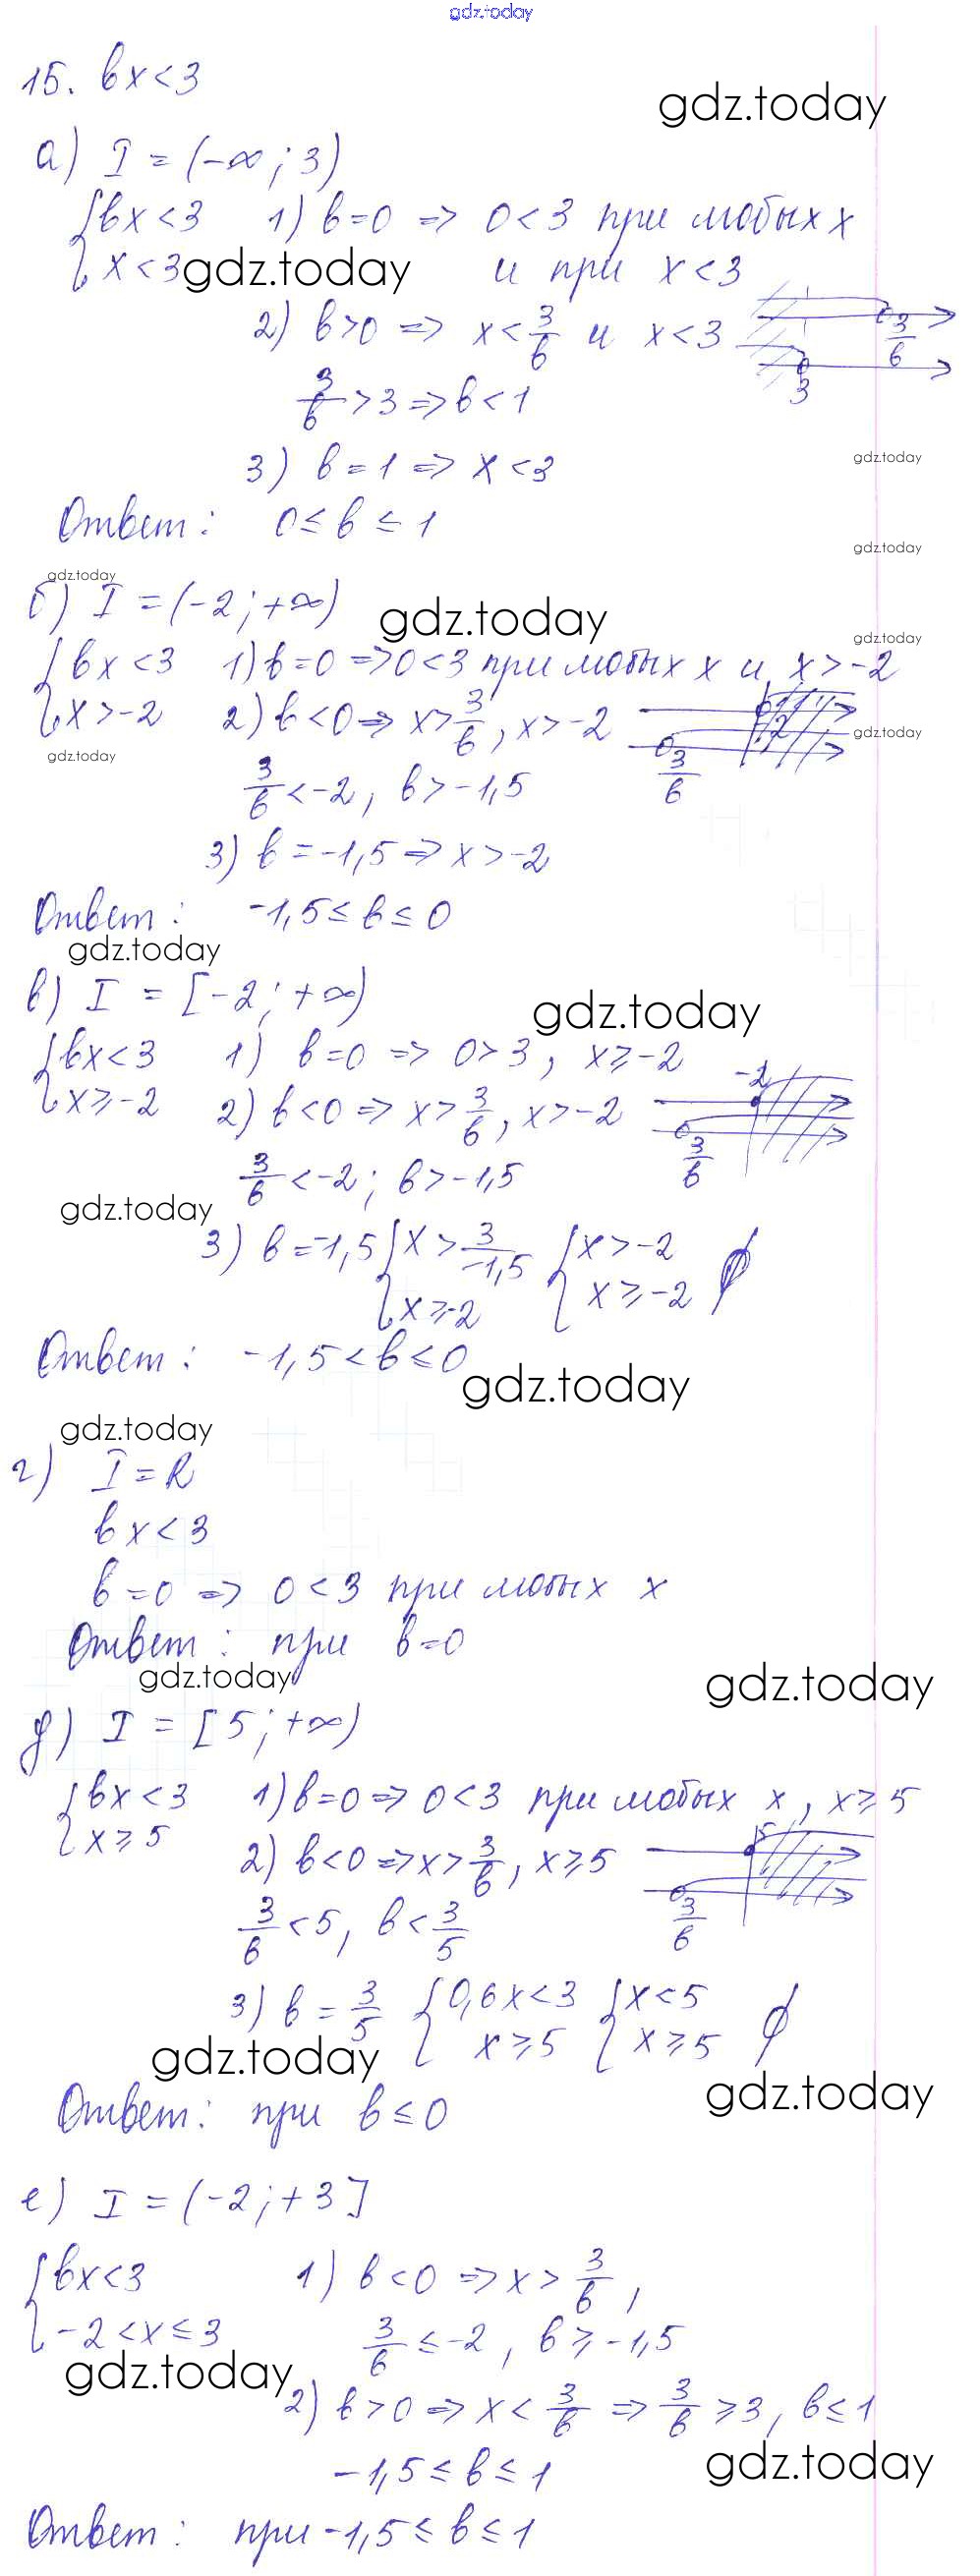 gdz.today
15. bx<3
gdz.today
а) I = (-∞; 3)
{bx<3 1) b=0 => 0<3 при любых x
{x<3 и при x<3
gdz.today
2) b>0 => x<3/b и x<3
3/b
3
3/b>3 => b<1
3) b=1 => x<3
gdz.today
Ответ: 0≤b≤1
gdz.today
gdz.today
б) I = (-2; +∞)
gdz.today
gdz.today
{bx<3 1) b=0 => 0<3 при любых x и x>-2
{x>-2 2) b<0 => x>3/b, x>-2
-2
gdz.today
3/b
gdz.today
3/b<-2, b>-1,5
3) b=-1,5 => x>-2
Ответ: -1,5≤b≤0
gdz.today
в) I = [-2; +∞)
gdz.today
{bx<3 1) b=0 => 0>3, x≥-2
{x≥-2 2) b<0 => x>3/b, x>-2
-2
3/b
3/b<-2; b>-1,5
gdz.today
3) b=-1,5 {x>3/-1,5 {x>-2 ∅
{x≥-2 {x≥-2
Ответ: -1,5<b≤0
gdz.today
gdz.today
г) I=R
bx<3
b=0 => 0<3 при любых x
Ответ: при b=0
gdz.today
gdz.today
д) I = [5; +∞)
{bx<3 1) b=0 => 0<3 при любых x, x≥5
{x≥5 2) b<0 => x>3/b, x≥5
5
3/b
3/b<5, b<3/5
3) b=3/5 {0,6x<3 {x<5 ∅
{x≥5 {x≥5
gdz.today
gdz.today
Ответ: при b≤0
е) I = (-2; +3]
{bx<3 1) b<0 => x>3/b,
{-2<x≤3 3/b≤-2, b≥-1,5
gdz.today
2) b>0 => x<3/b => 3/b≥3, b≤1
gdz.today
-1,5≤b≤1
Ответ: при -1,5≤b≤1